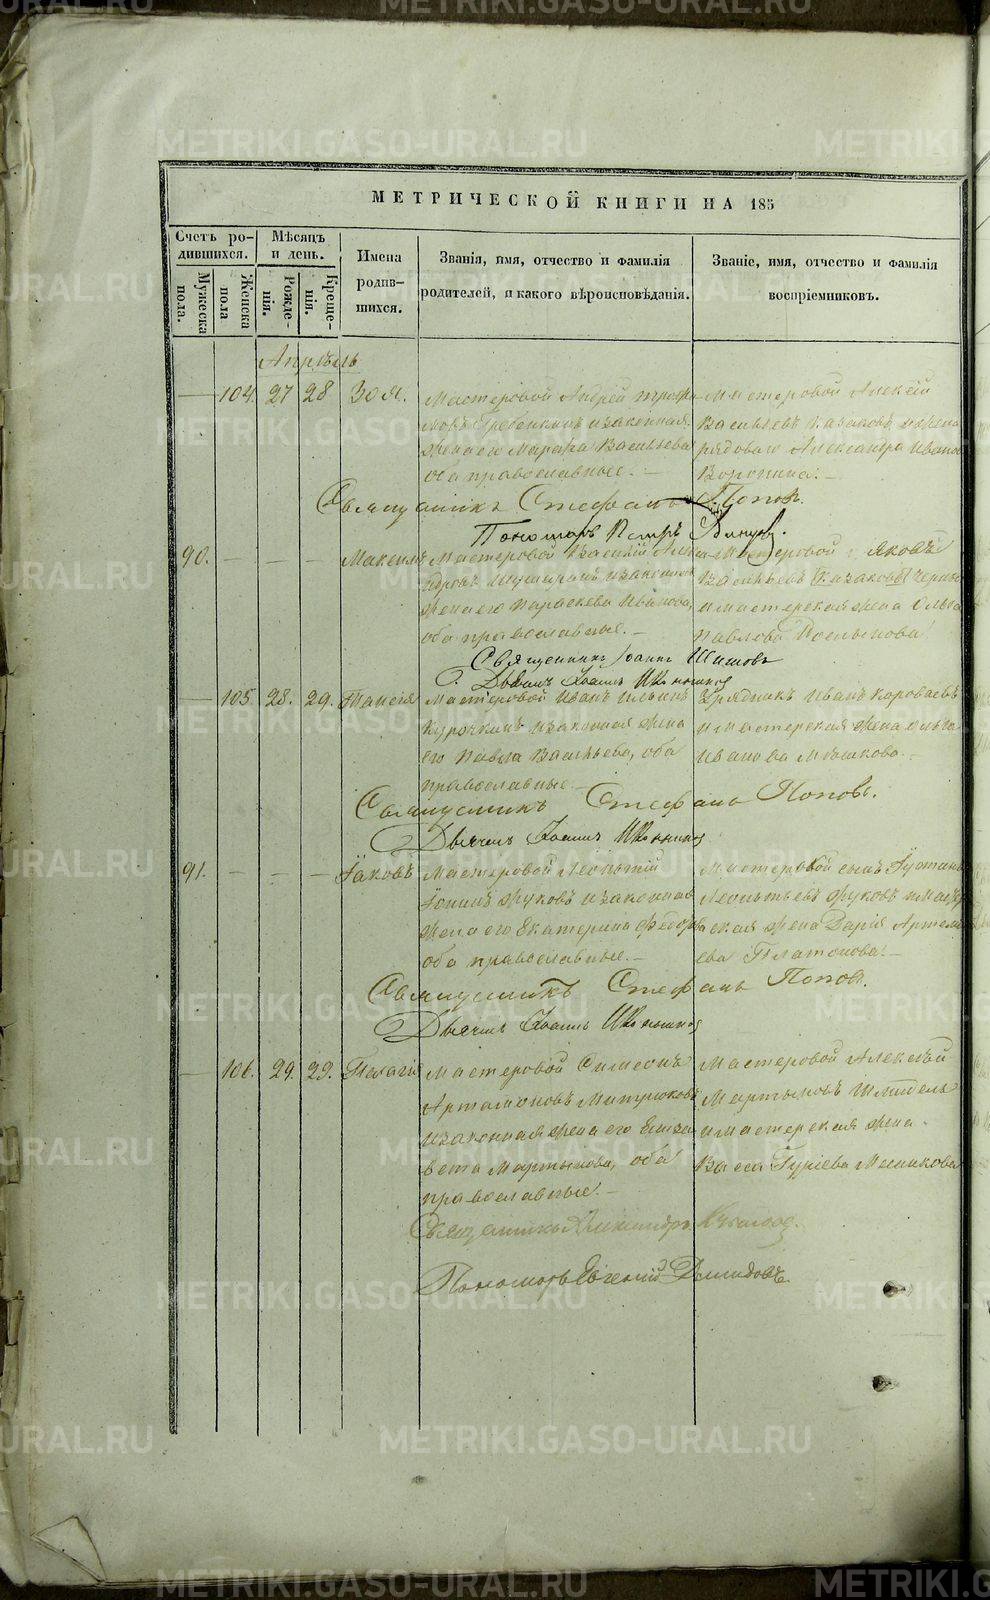 МЕТРИЧЕСКОЙ КНИГИ НА 185
Счетъ ро-
дившихся.
Мужеска
пола.
Женска
пола
Мѣсяцъ
и день.
Рожде-
нія.
Креще-
нія.
Имена
родив-
шихся.
Званія, имя, отчество и фамилія
родителей, и какого вѣроисповѣданія.
Званіе, имя, отчество и фамилія
воспріемниковъ.
Апрѣль
— 104. 27 28 Зоя.
Мастеровой Андрей
законная
жена его Васильева
оба православные. —
Мастеровой Алексѣй
Васильевъ Казаковъ и жена
рядоваго Александра Иванова
Воронина. —
Священникъ Стефанъ Поповъ.
Пономарь Петръ
90. — — — Максимъ
Мастеровой Василій
законная
жена его Параскева Иванова,
оба православные. —
Мастеровой Яковъ
Васильевъ (Казаковъ)
и мастерская жена Ольга
Павлова
Священникъ Іоаннъ Шишовъ
Дьячекъ Іоаннъ
— 105. 28. 29. Таисія
Мастеровой Иванъ Ильинъ
Курочкинъ и законная жена
его Павла Васильева, оба
православные —
Урядникъ Иванъ Короваевъ
и мастерская жена Ольга
Иванова Мѣшкова.
Священникъ Стефанъ Поповъ.
Дьячекъ Іоаннъ
91. — — — Іаковъ
Мастеровой Леонтій
Жуковъ и законная
жена его Екатерина Федорова
оба православные. —
Мастеровой сынъ Іустинъ
Леонтьевъ Жуковъ и мастер
ская жена Дарія Артемь
ева Платонова. —
Священникъ Стефанъ Поповъ.
Дьячекъ Іоаннъ
— 106. 29. 29. Пелагія
Мастеровой Симеонъ
Артамоновъ Митрюковъ
и законная жена его Елиза
вета Мартынова, оба
православные. —
Мастеровой Алексѣй
Мартыновъ
и мастерская жена
Васса Гуріева Мясникова
Священникъ Александръ
Пономарь Евгеній Демидовъ
METRIKI.GASO-URAL.RU